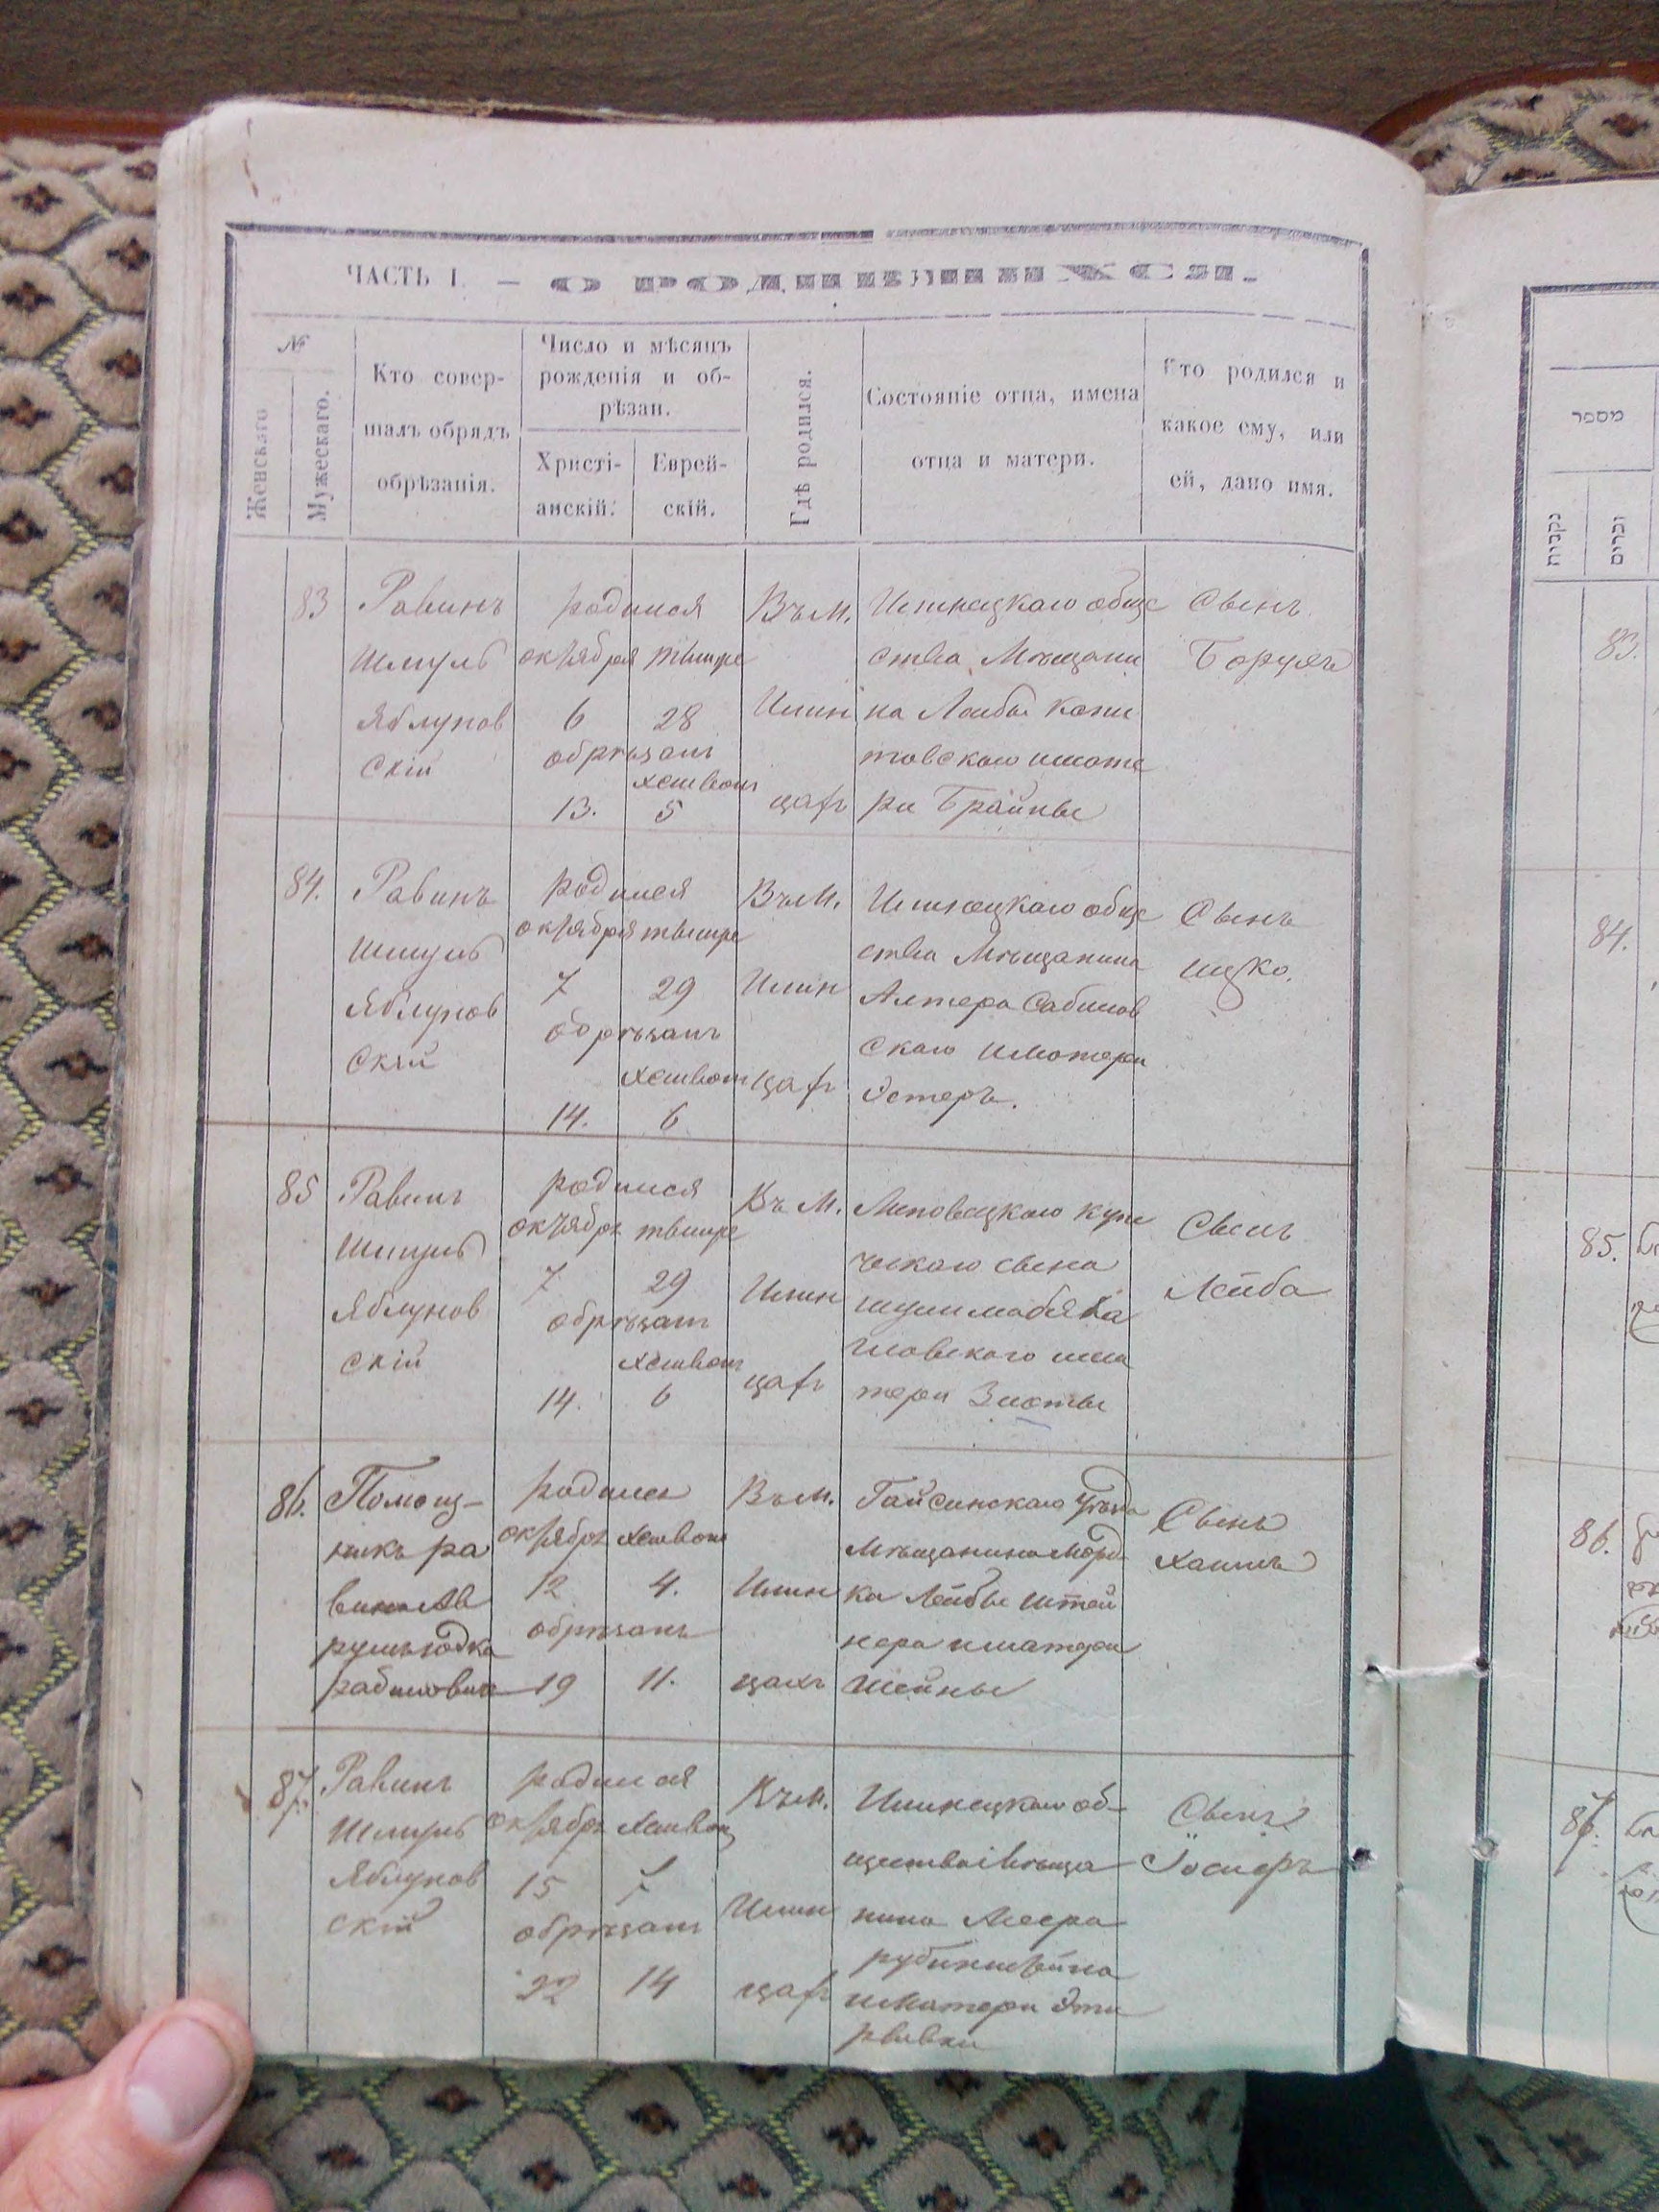 ЧАСТЬ I. — О РОДИВШИХСЯ.
№
Женскаго
Мужескаго.
Кто совер-
шалъ обрядъ
обрѣзанія.
Число и мѣсяцъ
рожденія и об-
рѣзан.
Христі-
анскій.
Еврей-
скій.
Гдѣ родился.
Состояніе отца, имена
отца и матери.
Кто родился и
какое ему, или
ей, дано имя.
83
Равинъ
Шмуль
Яблунов
скій
родился
октября тышре
6 28
обрѣзанъ
хешван
13. 5
Въ М.
Илин
цахъ
Илинецкаго обще
ства Мѣщани
на Лейбы
товскаго и мате
ри Брайны
Сынъ
Борухъ
84.
Равинъ
Шмуль
Яблунов
скій
родился
октября тышре
7 29
обрѣзанъ
хешван
14. 6
Въ М.
Илин
цахъ
Илинецкаго обще
ства Мѣщанина
Алтера Сабинов
скаго и матери
Эстеръ.
Сынъ
Ицко.
85
Равинъ
Шмуль
Яблунов
скій
родился
октября тышре
7 29
обрѣзанъ
хешван
14. 6
Въ М.
Илин
цахъ
Липовецкаго купе
ческаго сына
новскаго и ма
тери Злоты
Сынъ
Лейба
86.
Помощ-
никъ ра
вина Ав
румъ Юдка
Рабинович
родился
октября хешван
12 4.
обрѣзанъ
19 11.
Въ М.
Илин
цахъ
Гайсинскаго уѣзда
Мѣщанина Морд
ка Лейбы Штей
нера и матери
Шейны
Сынъ
Хаимъ
87.
Равинъ
Шмуль
Яблунов
скій
родился
октября хешван
15 7
обрѣзанъ
22 14
Въ М.
Илин
цахъ
Илинецкаго об-
щества Мѣща
нина Меера
Рубинштейна
и матери Эти
Рывки
Сынъ
Іосифъ
מספר
נקבות
זכרים
83.
84.
85.
86.
87.